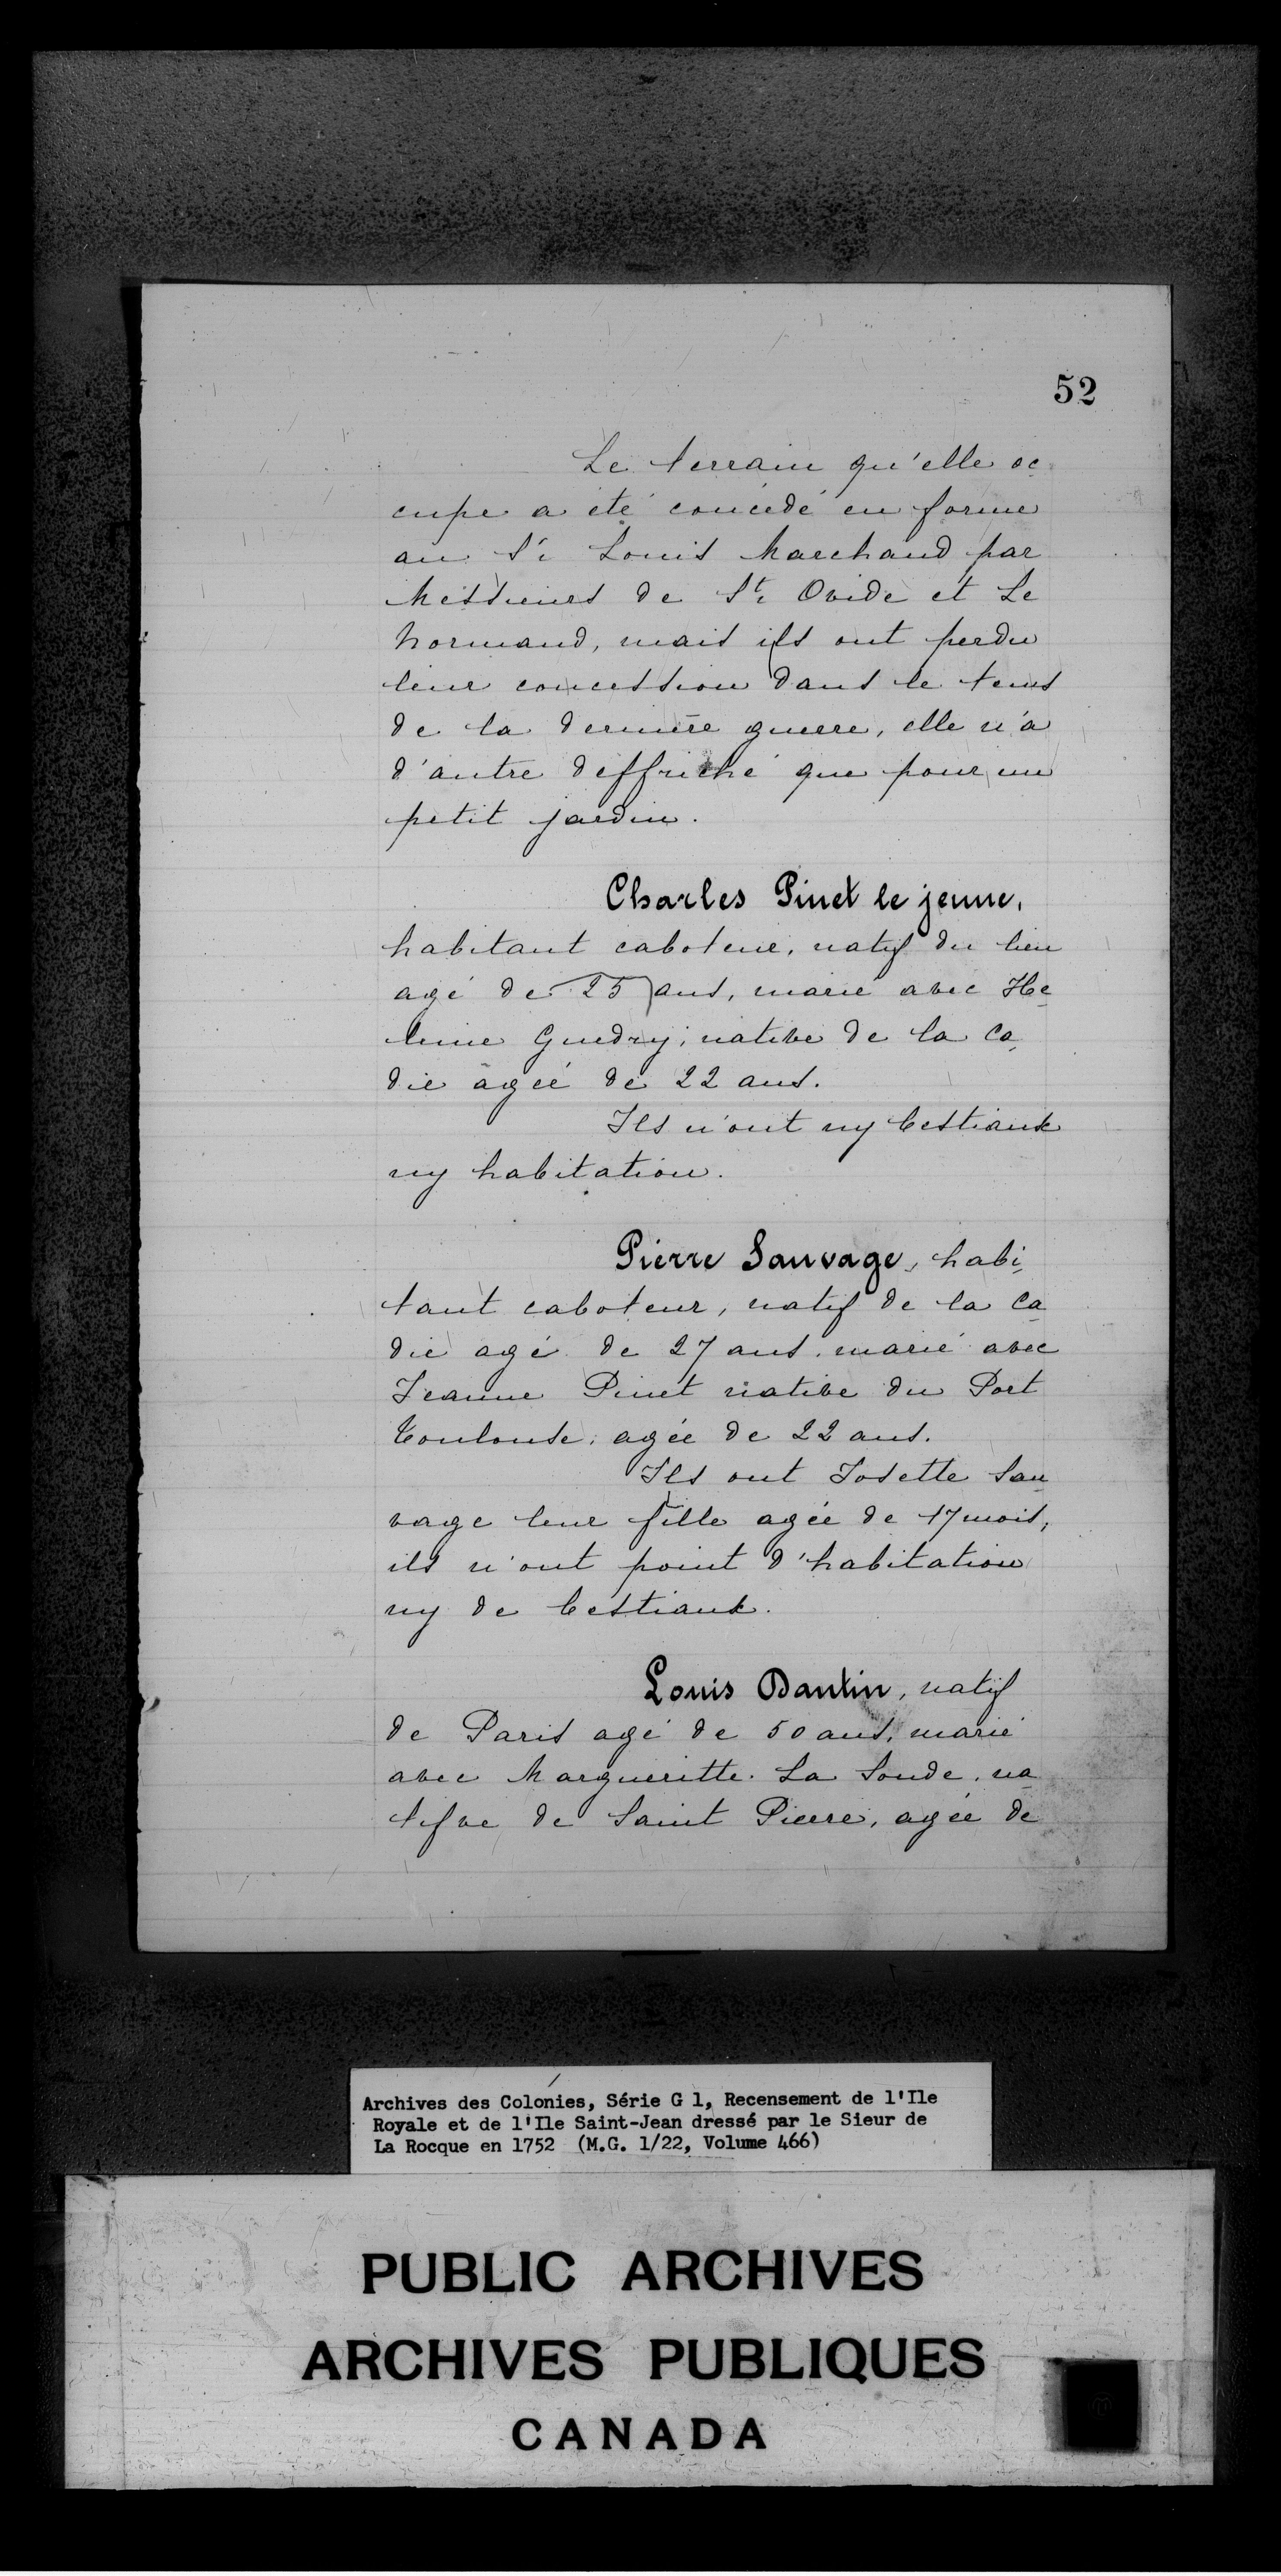 52
Le terrain qu'elle oc
cupe a été concédé en forme
au Sr Louis Marchand par
Messieurs de St. Ovide et Le
Normand, mais ils ont perdu
leur concession dans le tems
de la dernière guerre, elle n'a
d'autre deffriché que pour un
petit jardin.
Charles Pinet le jeune,
habitant caboteur, natif du lieu
agé de 25 ans, marié avec He
leine Guedry, native de la Ca
die agée de 22 ans.
Ils n'ont ny bestiaux
ny habitation.
Pierre Sauvage, habi
tant caboteur, natif de la Ca
die agé de 27 ans, marié avec
Jeanne Pinet native du Port
Toulouse, agée de 22 ans.
Ils ont Josette Sau
vage leur fille agée de 17 mois,
ils n'ont point d'habitation
ny de bestiaux.
Louis Dantin, natif
de Paris agé de 50 ans, marié
avec Margueritte La Sonde, na
tifve de Saint Pierre, agée de
Archives des Colonies, Série G 1, Recensement de l'Ile
Royale et de l'Ile Saint-Jean dressé par le Sieur de
La Rocque en 1752 (M.G. 1/22, Volume 466)
PUBLIC ARCHIVES
ARCHIVES PUBLIQUES
CANADA